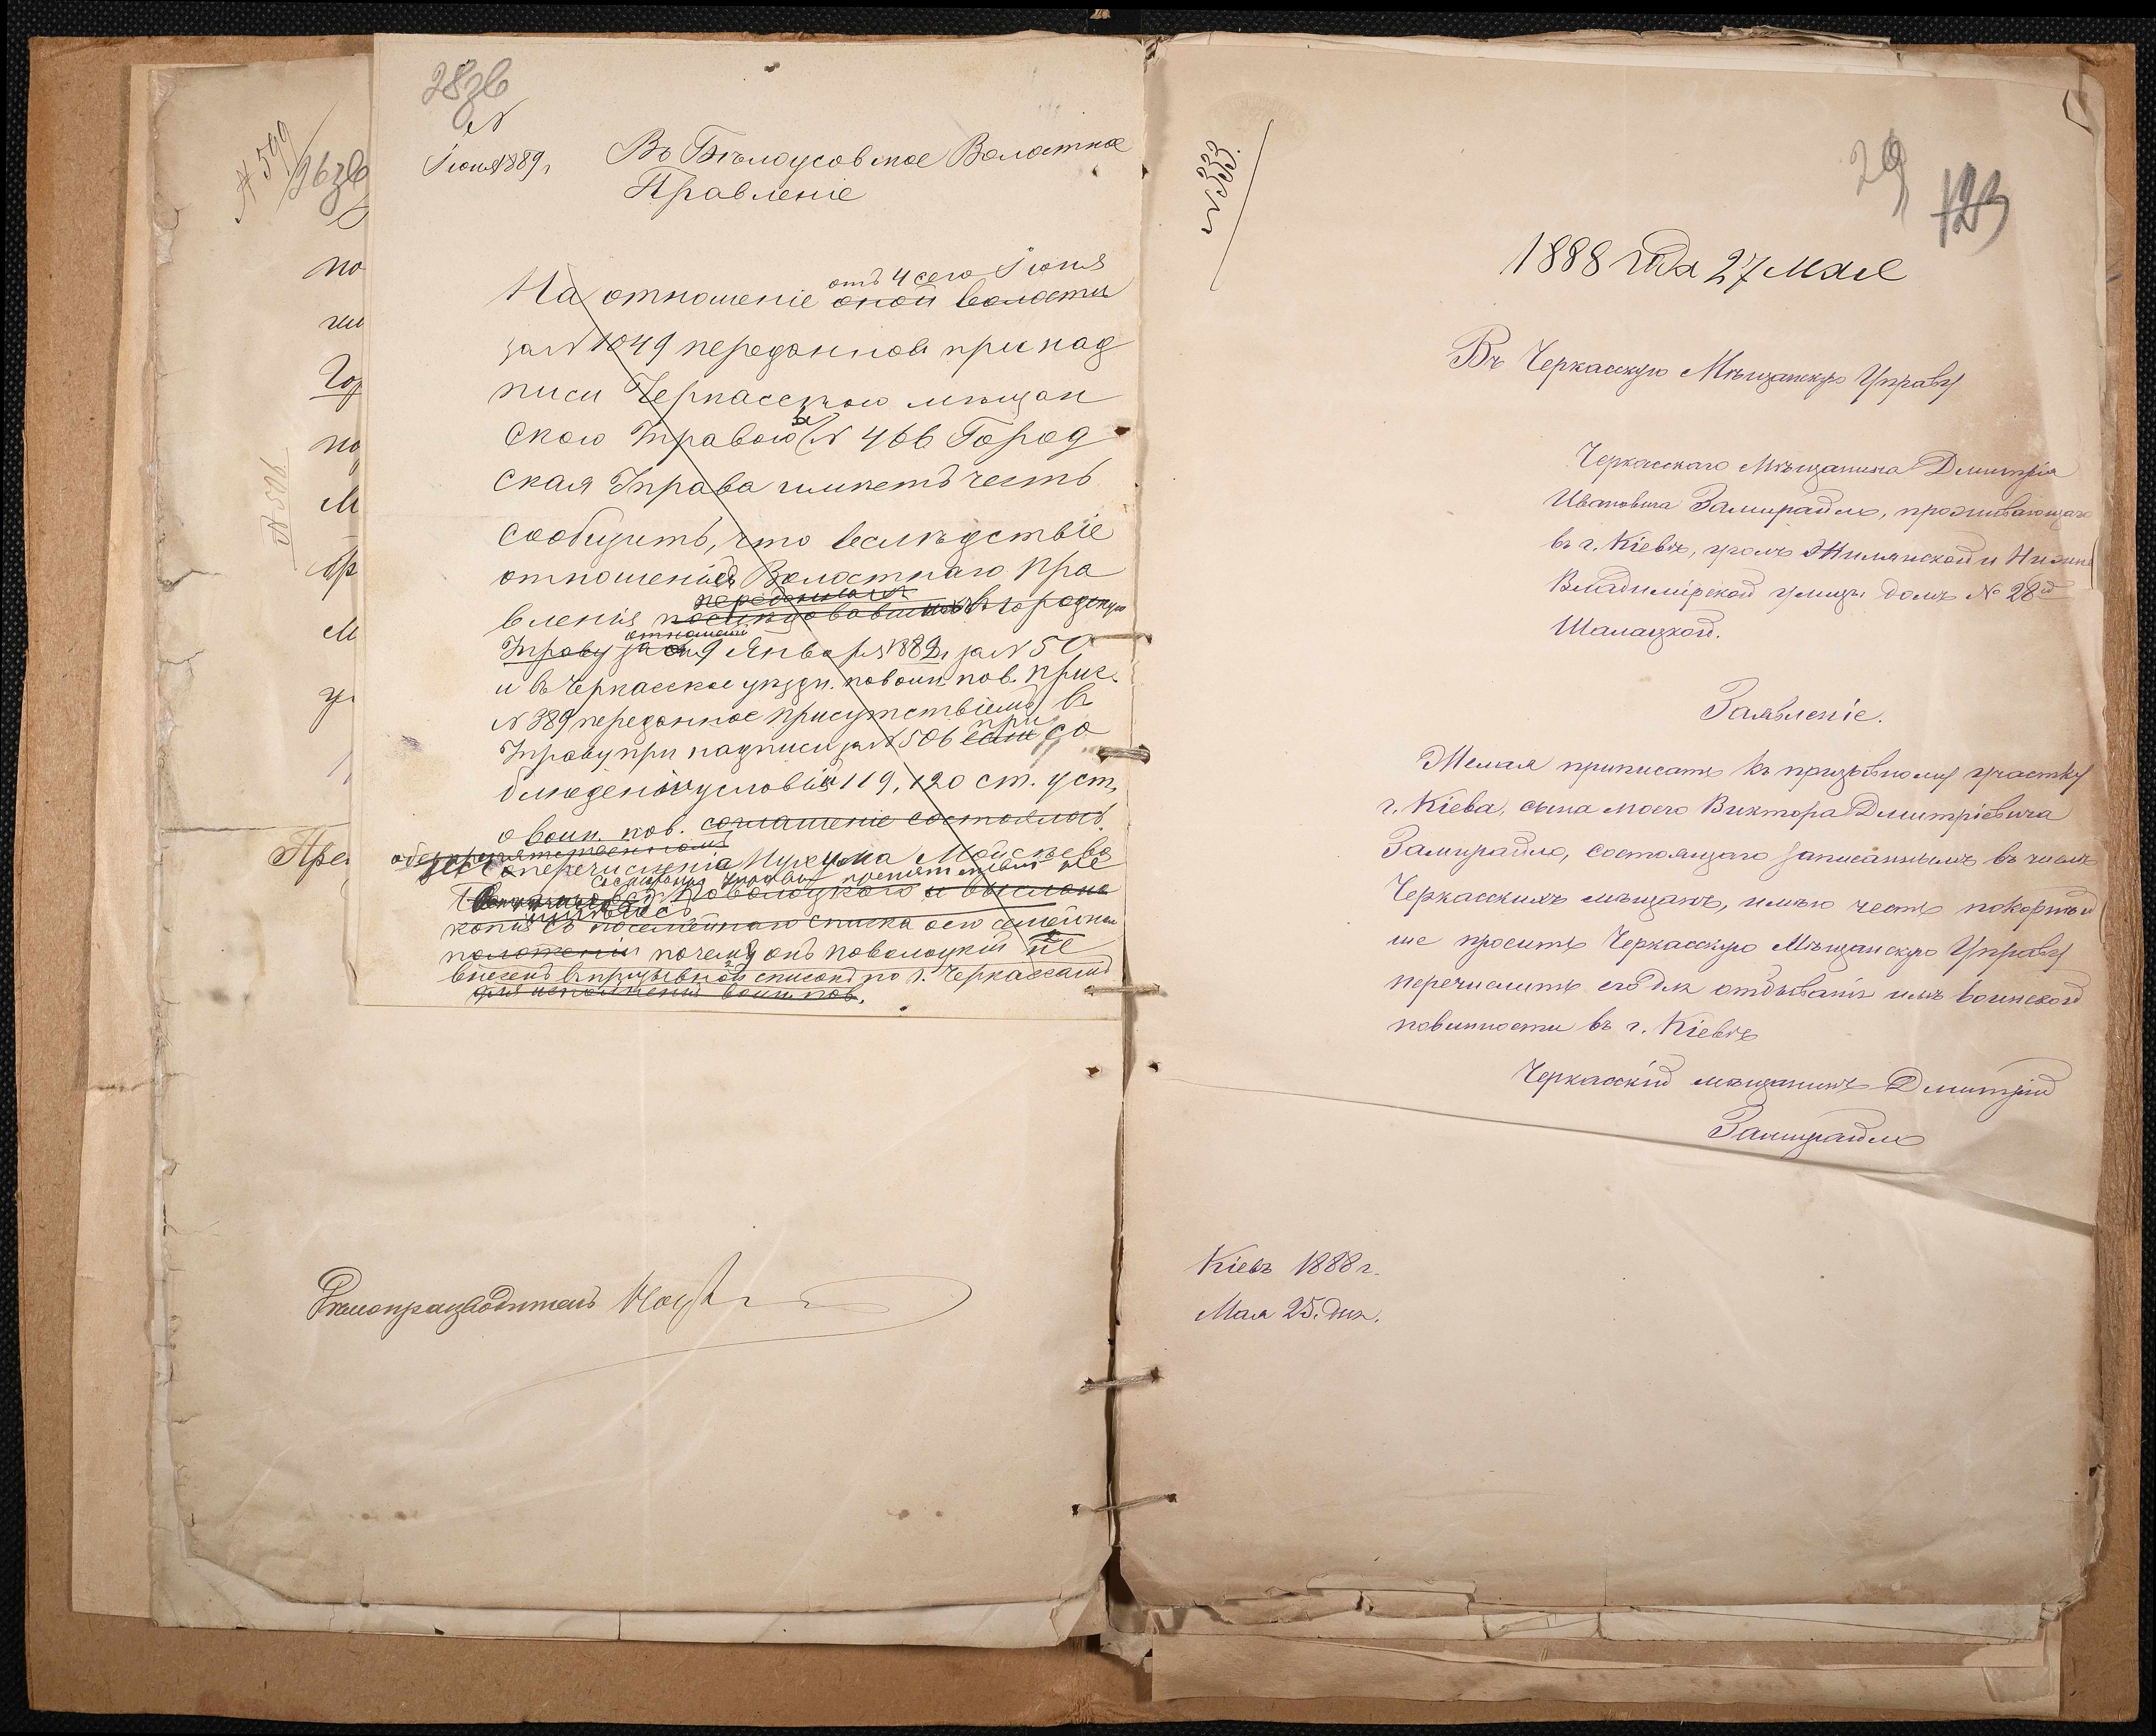 28зв
№
Іюня 1889 г.
Въ Бѣлоусовское Волостное
Правленіе
отъ 4 сего Іюня
На отношеніе оной волости
за № 1049 переданное при над
писи Черкасскою мѣщан
скою Управою за № 466 Город
ская Управа имѣетъ честь
сообщить, что вслѣдствіе
отношенія Волостнаго Пра
вленія послѣдовавшихъ въ городскую
Управу 9 Января 1889 г. за № 50
и въ Черкасское уѣздн. по воин. пов. прис.
№ 389 переданное присутствіемъ въ
Управу при надписи за № 506 при со
блюденіи условій 119, 120 ст. уст.
о воин. пов. соглашеніе состоялось
перечисленія Мойсѣева
Поволоцкаго и выслана
копія съ посемейнаго списка о его семейном
положеніи почему онъ Поволоцкій не
внесенъ въ призывной списокъ по г. Черкассамъ
для исполненія воин. пов.
№ 599
26зв
по
Гор
М
бр
М
Пре
№ 506
Дѣлопроизводитель
№ 333.
29
123
1888 года 27 Мая
Въ Черкасскую Мѣщанскую Управу
Черкасскаго Мѣщанина Дмитрія
Ивановича Замирайло, проживающаго
въ г. Кіевѣ, уголъ Жилянской и Нижне
Владимірской улицы домъ № 28й
Шалацкой.
Заявленіе.
Желая приписать къ призывному участку
г. Кіева, сына моего Виктора Дмитріевича
Замирайло, состоящаго записаннымъ въ числѣ
Черкасскихъ мѣщанъ, имѣю честь покорнѣй
ше просить Черкасскую Мѣщанскую Управу
перечислить его для отбыванія имъ воинской
повинности въ г. Кіевѣ
Черкасскій мѣщанинъ Дмитрій
Замирайло
Кіевъ 1888 г.
Мая 25. дня.